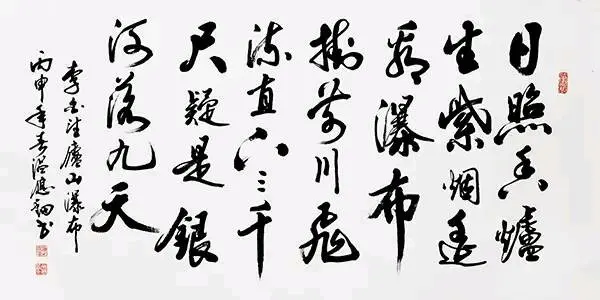 日照香爐
生紫烟遥
看瀑布
掛前川飛
流直下三千
尺疑是銀
河落九天
李白望廬山瀑布
丙申年春温應书